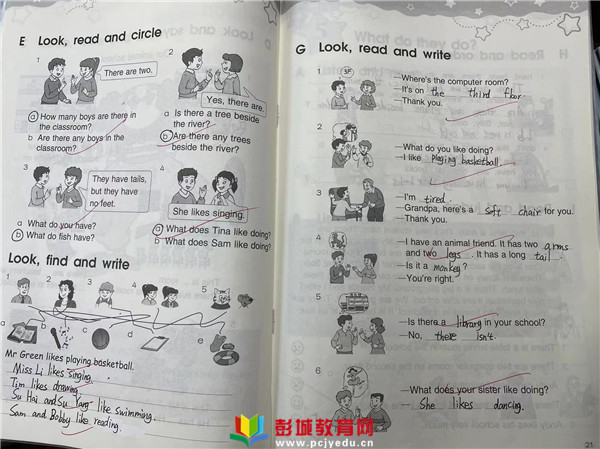 E Look, read and circle
1
There are two.
a How many boys are there in
the classroom?
b Are there any boys in the
classroom?
2
Yes, there are.
a Is there a tree beside
the river?
b Are there any trees
beside the river?
3
They have tails,
but they have
no feet.
a What do you have?
b What do fish have?
4
She likes singing.
a What does Tina like doing?
b What does Sam like doing?
Look, find and write
1 2 3 4 5
a b c d e
Mr Green likes playing basketball.
Miss Li likes singing.
Tim likes drawing.
Su Hai and Su Yang like swimming.
Sam and Bobby like reading.
G Look, read and write
1
3F
—Where's the computer room?
—It's on the third floor.
—Thank you.
2
—What do you like doing?
—I like playing basketball.
3
—I'm tired.
—Grandpa, here's a soft chair for you.
—Thank you.
4
—I have an animal friend. It has two arms
and two legs. It has a long tail.
—Is it a monkey?
—You're right.
5
—Is there a library in your school?
—No, there isn't.
6
—What does your sister like doing?
—She likes dancing.
21
彭城教育网
www.pcjyedu.cn